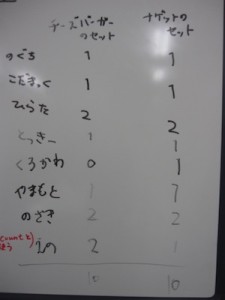 チーズバーガーのセット
ナゲットのセット
のぐち 1 1
こだま 1 1
ひらた 2 2
とっきー 1 1
くろかわ 0 1
やまもと 1 1
のざき 2 2
2 1
10 10